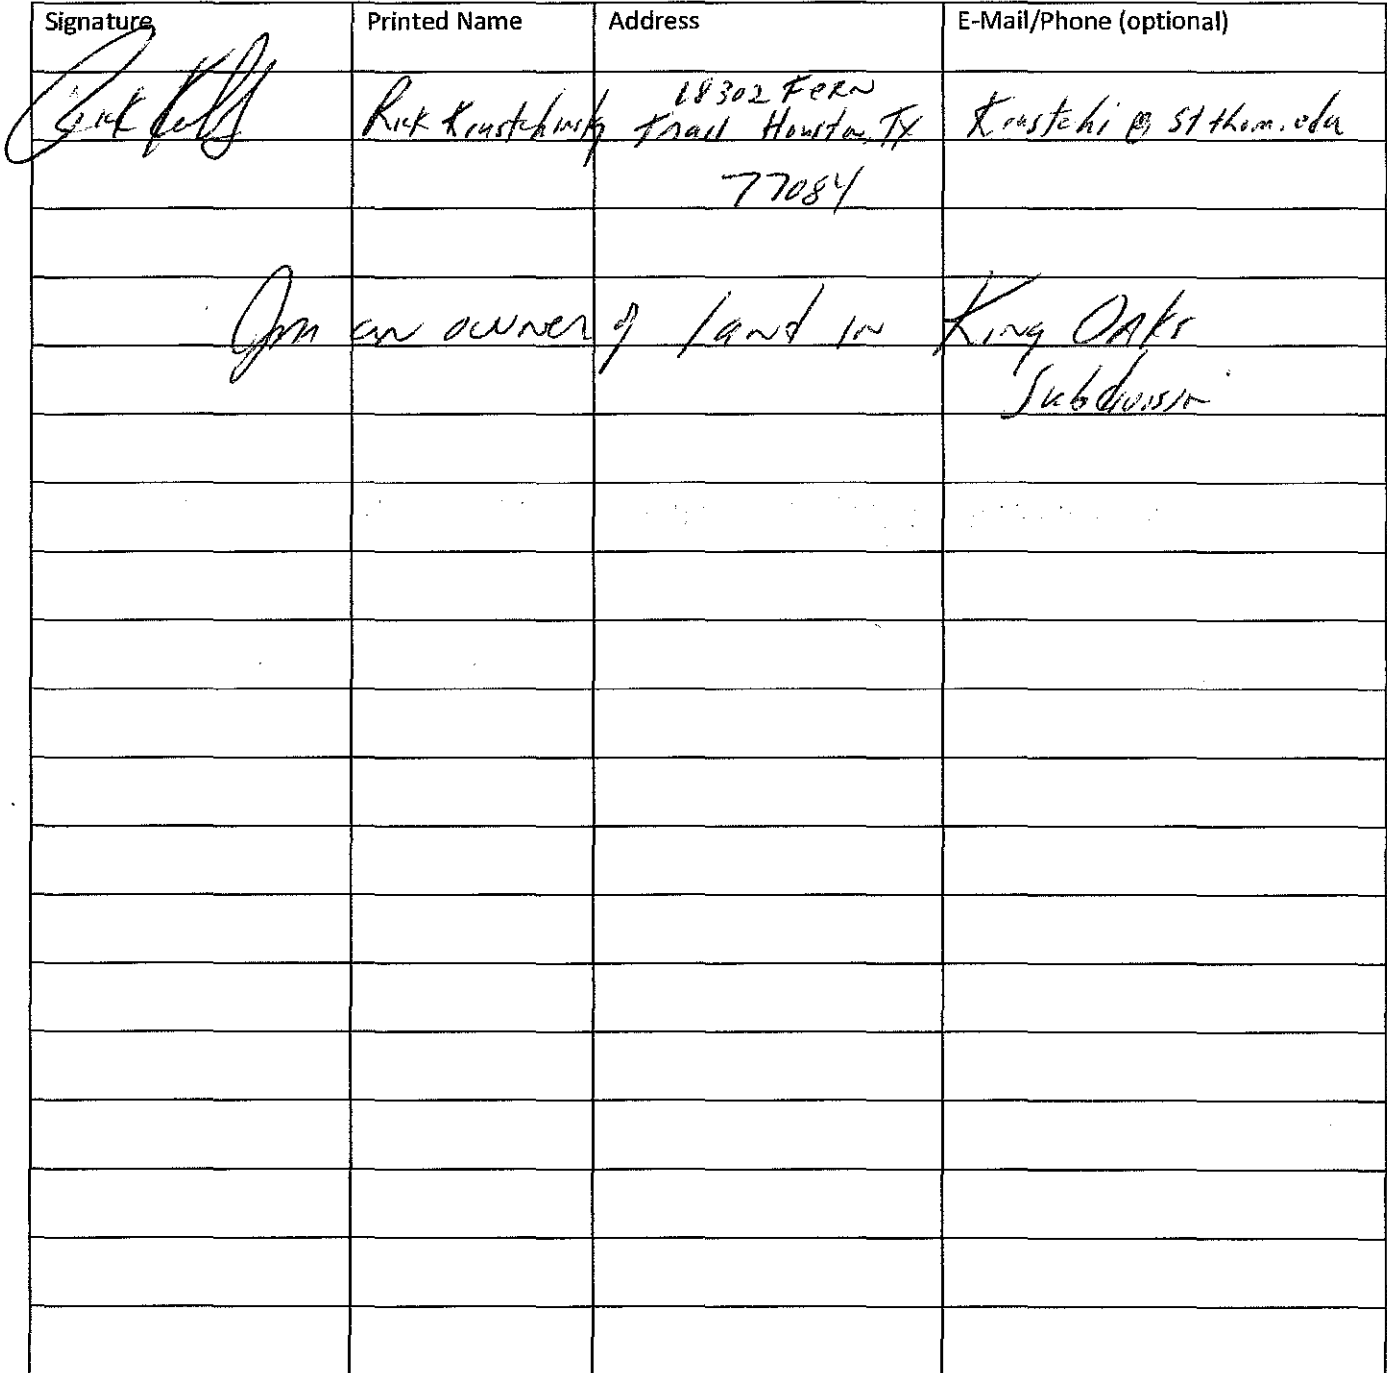 Signature Printed Name Address E-Mail/Phone (optional)
18302 Fern
Rick Krustchinsky Trail Houston, TX Krustchi @ stthom.edu
77084
I'm an owner of land in King Oaks
Subdivision